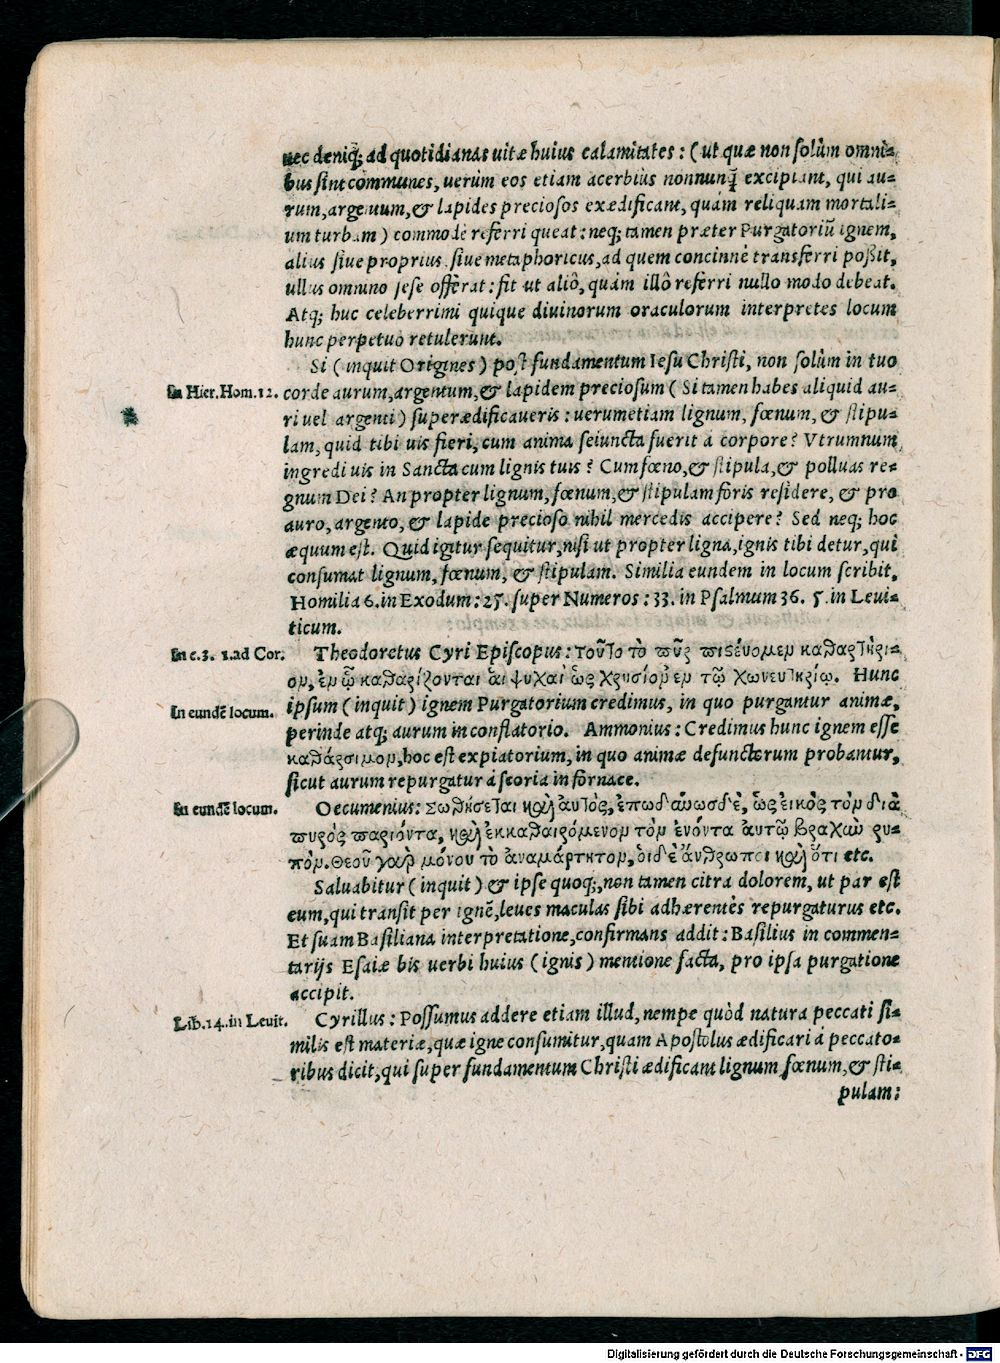 nec deniq; ad quotidianas uitæ huius calamitates: (ut quæ non solùm omni⸗
bus sint communes, uerùm eos etiam acerbius nonnunq̃ excipiant, qui au⸗
rum, argentum, & lapides preciosos exædificant, quàm reliquam mortali⸗
um turbam) commodè referri queat: neq; tamen præter Purgatoriũ ignem,
alius siue proprius, siue metaphoricus, ad quem concinnè transferri poßit,
ullus omnino sese offèrat: fit ut aliò, quàm illò referri nullo modo debeat.
Atq; huc celeberrimi quique diuinorum oraculorum interpretes locum
hunc perpetuò retulerunt.
Si (inquit Origines) post fundamentum Iesu Christi, non solùm in tuo
In Hier. Hom. 12. corde aurum, argentum, & lapidem preciosum (Si tamen habes aliquid au⸗
ri uel argenti) superædificaueris: uerumetiam lignum, fœnum, & stipu⸗
lam, quid tibi uis fieri, cum anima seiuncta fuerit à corpore? Vtrumnum
ingredi uis in Sancta cum lignis tuis? Cum fœno, & stipula, & polluas re⸗
gnum Dei? An propter lignum, fœnum, & stipulam fôris residere, & pro
auro, argento, & lapide precioso nihil mercedis accipere? Sed neq; hoc
æquum est. Quid igitur sequitur, nisi ut propter ligna, ignis tibi detur, qui
consumat lignum, fœnum, & stipulam. Similia eundem in locum scribit,
Homilia 6. in Exodum: 25. super Numeros: 33. in Psalmum 36. 5. in Leui⸗
ticum.
In c. 3. 1. ad Cor. Theodoretus Cyri Episcopus: τοῦτο τὸ πῦρ πιϛέυομεν καθαρτήρι⸗
ον, ἐν ᾧ καθαρίζονται ἁι ψυχαὶ ὡς χρυσίον ἐν τῷ χωνευτηρίῳ. Hunc
In eundẽ locum. ipsum (inquit) ignem Purgatorium credimus, in quo purgantur animæ,
perinde atq; aurum in conflatorio. Ammonius: Credimus hunc ignem esse
καθάρσιμον, hoc est expiatorium, in quo animæ defunctorum probantur,
sicut aurum repurgatur à scoria in fôrnace.
In eundẽ locum. Oecumenius: Σωθήσεται καὶ αυτὸς, ἐπωδ᾽ αύωσδ᾽ὲ, ὡς εικὸς τὸν διὰ
πυρός παριόντα, καὶ ἐκκαθαιρόμενον τὸν ἐνόντα ἀυτῷ βραχὺν ρυ⸗
πόν. Θεοῦ γὰρ μόνου τὸ ἀναμάρτητον, ὁιδ᾽ὲ ἄνθρωποι καὶ ὅτι etc.
Saluabitur (inquit) & ipse quoq;, non tamen citra dolorem, ut par est
eum, qui transit per ignẽ, leues maculas sibi adhærentès repurgaturus etc.
Et suam Basiliana interpretatione, confirmans addit: Basilius in commen⸗
tarijs Esaiæ bis uerbi huius (ignis) mentione facta, pro ipsa purgatione
accipit.
Lib. 14. in Leuit. Cyrillus: Possumus addere etiam illud, nempe quòd natura peccati si⸗
milis est materiæ, quæ igne consumitur, quam Apostolus ædificari à peccato⸗
ribus dicit, qui super fundamentum Christi ædificant lignum fœnum, & sti⸗
pulam:
Digitalisierung gefördert durch die Deutsche Forschungsgemeinschaft - DFG